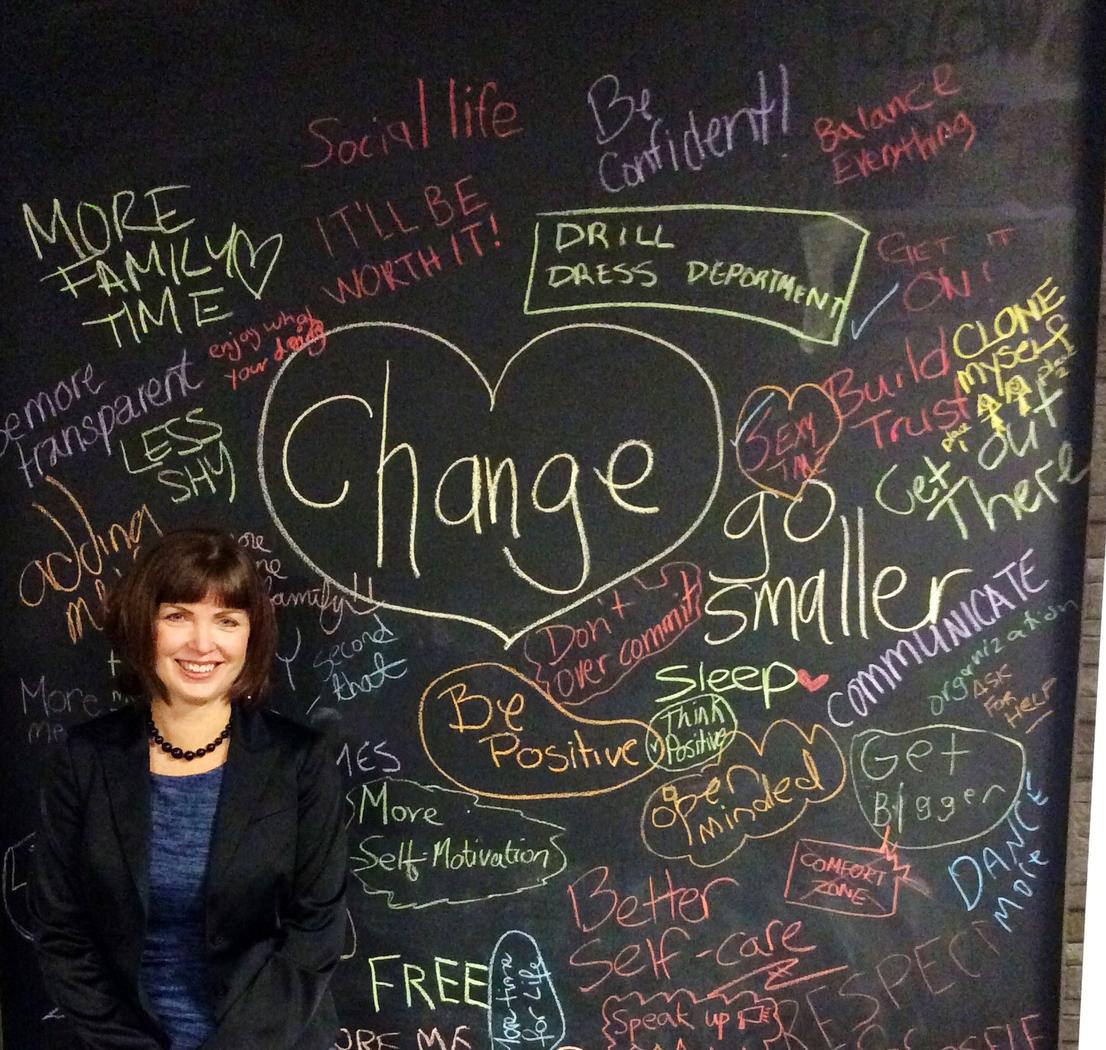 Social life
Be
Confident!
Balance
Everything
MORE
FAMILY
TIME
IT'LL BE
WORTH IT!
DRILL
DRESS DEPORTMENT
GET IT
ON!
enjoy what
your doing
CLONE
myself
place
2
place
1
Be more
transparent
LESS
SHY
Change
SEXY
Build
Trust
Get out
There
go
smaller
adding
family!!
second
that
Don't
over commit
COMMUNICATE
organization
ASK
FOR
HELP
Sleep
Be
Positive
Think
Positive
open
minded
Get
Bigger
More
More
Self-Motivation
COMFORT
ZONE
DANCE
MORE
Better
Self-care
FREE
More time
for Life
RESPECT
Speak up